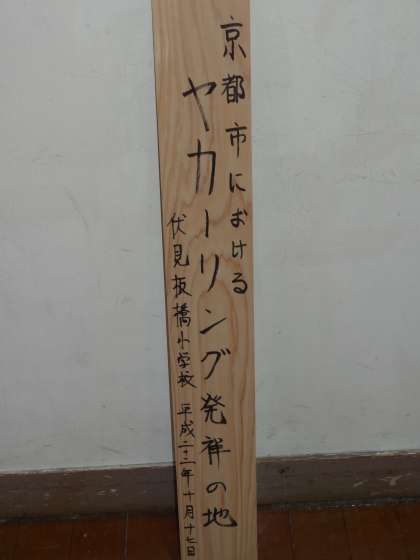 京都市における
ヤカーリング発祥の地
伏見板橋小学校 平成二十二年十月十七日